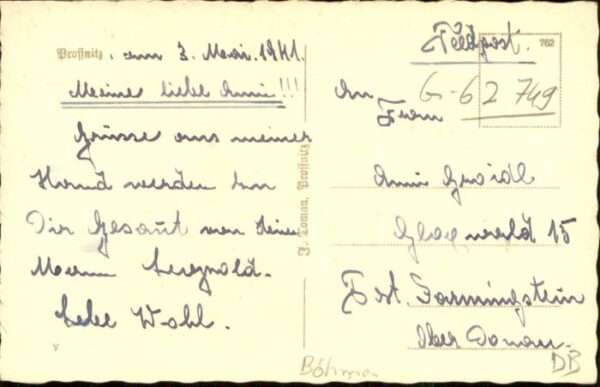 Proßnitz, am 3. Mai. 1941.
Meine liebe Ami!!!
Grüsse aus meiner
Hand werden an
Dir Gesant von deine
Mann
Lebe Wohl.
J. Toman, Proßnitz
Feldpost.
762
G-6 2 749
An
Frau
Ami
15
Post. Sarmingstein
Ober Donau.
Böhmen
DB